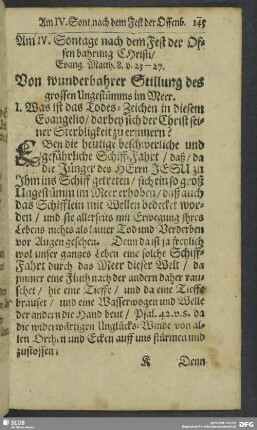 Am IV. Sont. nach dem Fest der Offenb. 145
Am IV. Sontage nach dem Fest der Of-
fen bahrung Christi/
Evang. Matth. 8. v. 23–27.
Von wunderbahrer Stillung des
grossen Ungestümms im Meer.
1. Was ist das Todes-Zeichen in diesem
Evangelio/ darbey sich der Christ seiner
Sterbligkeit zu erinnern?
EBen die heutige beschwerliche und
gefährliche Schiff-Fahrt/ daß/ da
die Jünger des HErrn JESU zu
Ihm ins Schiff getreten/ sich ein so groß
Ungestümm im Meer erhoben/ daß auch
das Schifflein mit Wellen bedecket wor-
den/ und sie allerseits mit Erwegung ihres
Lebens nichts als lauter Tod und Verderben
vor Augen gesehen. Denn da ist ja freylich
wol unser gantzes Leben eine solche Schiff-
Fahrt durch das Meer dieser Welt/ da
immer eine Fluth nach der andern daher rau-
schet/ hie eine Tieffe/ und da eine Tieffe
brauset/ und eine Wasserwogen und Welle
der andern die Hand beut/ Psal. 42. v. 8. da
die widerwärtigen Unglücks-Winde von al-
len Orthen und Ecken auff uns stürmen und
zustossen.
K Denn
SLUB
DFG